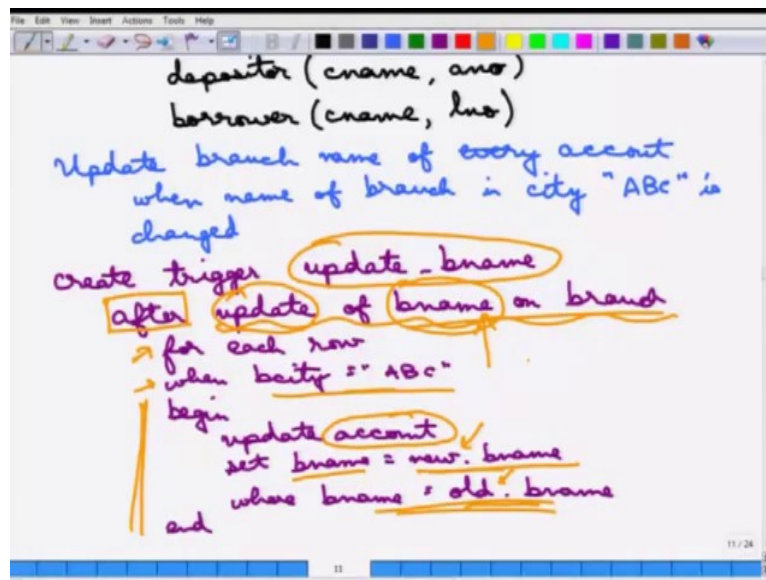 File Edit View Insert Actions Tools Help
depositor (cname, ano)
borrower (cname, lno)
Update branch name of every account
when name of branch in city "ABC" is
changed
create trigger update_bname
after update of bname on branch
for each row
when bcity = "ABC"
begin
update account
set bname = new. bname
where bname = old. bname
end
11
11 / 24